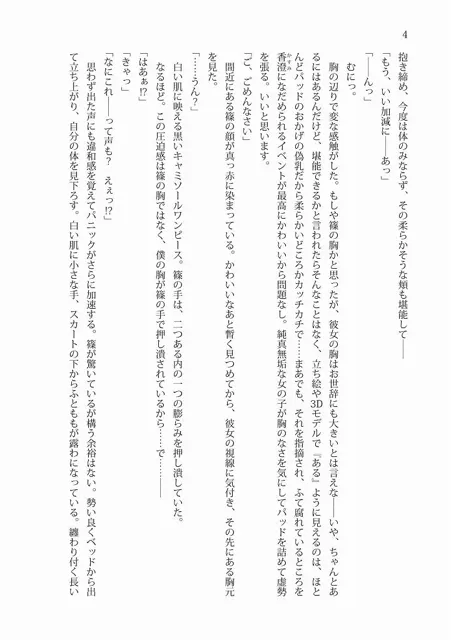 4
抱き締め、今度は体のみならず、その柔らかそうな頬も堪能して――
「もう、いい加減に――あっ」
「――んっ」
むにっ。
胸の辺りで変な感触がした。もしや篠の胸かと思ったが、彼女の胸はお世辞にも大きいとは言えな――いや、ちゃんとあ
るにはあるんだけど、堪能できるかと言われたらそんなことはなく、立ち絵や3Dモデルで『ある』ように見えるのは、ほと
んどパッドのおかげの偽乳だから柔らかいどころかカッチカチで……まあでも、それを指摘され、ふて腐れているところを
香澄になだめられるイベントが最高にかわいいから問題なし。純真無垢な女の子が胸のなさを気にしてパッドを詰めて虚勢
かすみ
を張る。いいと思います。
「ご、ごめんなさい」
間近にある篠の顔が真っ赤に染まっている。かわいいなあと暫く見つめてから、彼女の視線に気付き、その先にある胸元
を見た。
「……うん？」
白い肌に映える黒いキャミソールワンピース。篠の手は、二つある内の一つの膨らみを押し潰していた。
なるほど。この圧迫感は篠の胸ではなく、僕の胸が篠の手で押し潰されているから……で――――
「はあぁ!?」
「きゃっ」
「なにこれ――って声も？　えぇっ!?」
思わず出た声にも違和感を覚えてパニックがさらに加速する。篠が驚いているが構う余裕はない。勢い良くベッドから出
て立ち上がり、自分の体を見下ろす。白い肌に小さな手、スカートの下からふとももが露わになっている。纏わり付く長い